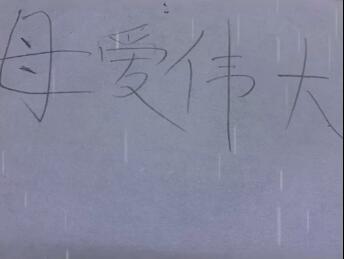 母爱伟大